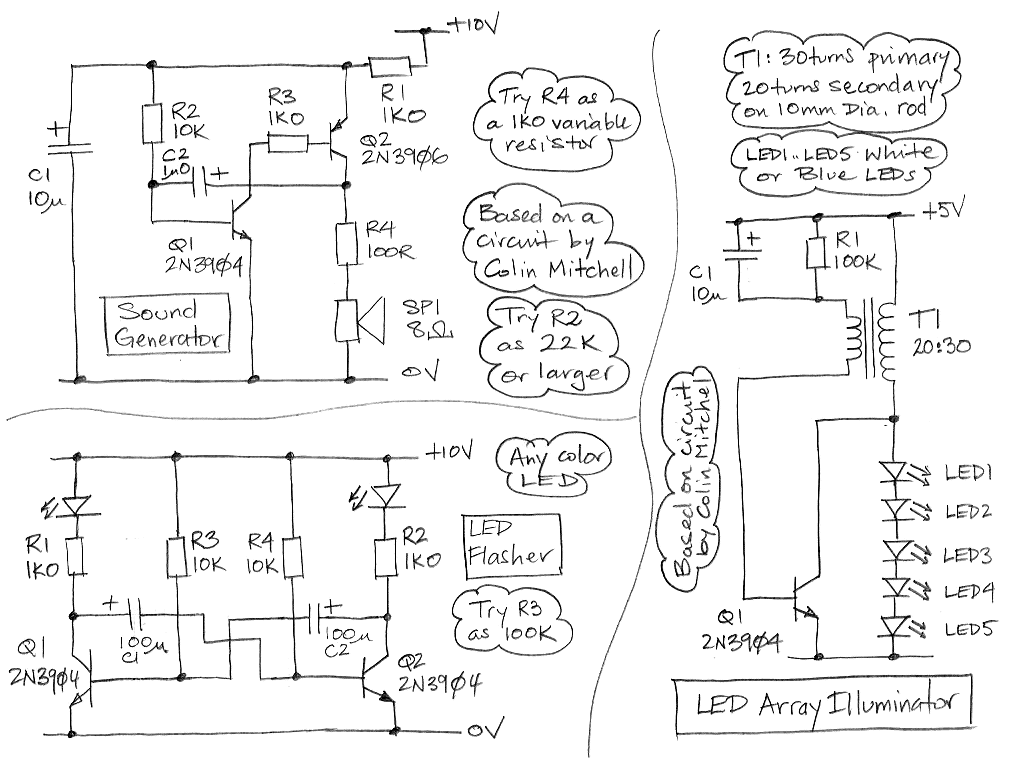 +10V
R1
1K0
R2
10K
R3
1K0
Q2
2N39Ø6
C2
1u0
C1
10µ
Q1
2N39Ø4
R4
100R
SP1
8Ω
Sound
Generator
0V
Try R4 as
a 1K0 variable
resistor
Based on a
circuit by
Colin Mitchell
Try R2
as 22K
or larger
+10V
Any color
LED
R1
1K0
R3
10K
R4
10K
R2
1K0
LED
Flasher
Try R3
as 100K
100µ
C1
100µ
C2
Q1
2N39Ø4
Q2
2N39Ø4
0V
T1: 30turns primary
20turns secondary
on 10mm Dia. rod
LED1..LED5 White
or Blue LEDs
+5V
C1
10µ
R1
100K
T1
20:30
Based on circuit
by Colin Mitchel
LED1
LED2
LED3
LED4
LED5
Q1
2N39Ø4
LED Array Illuminator